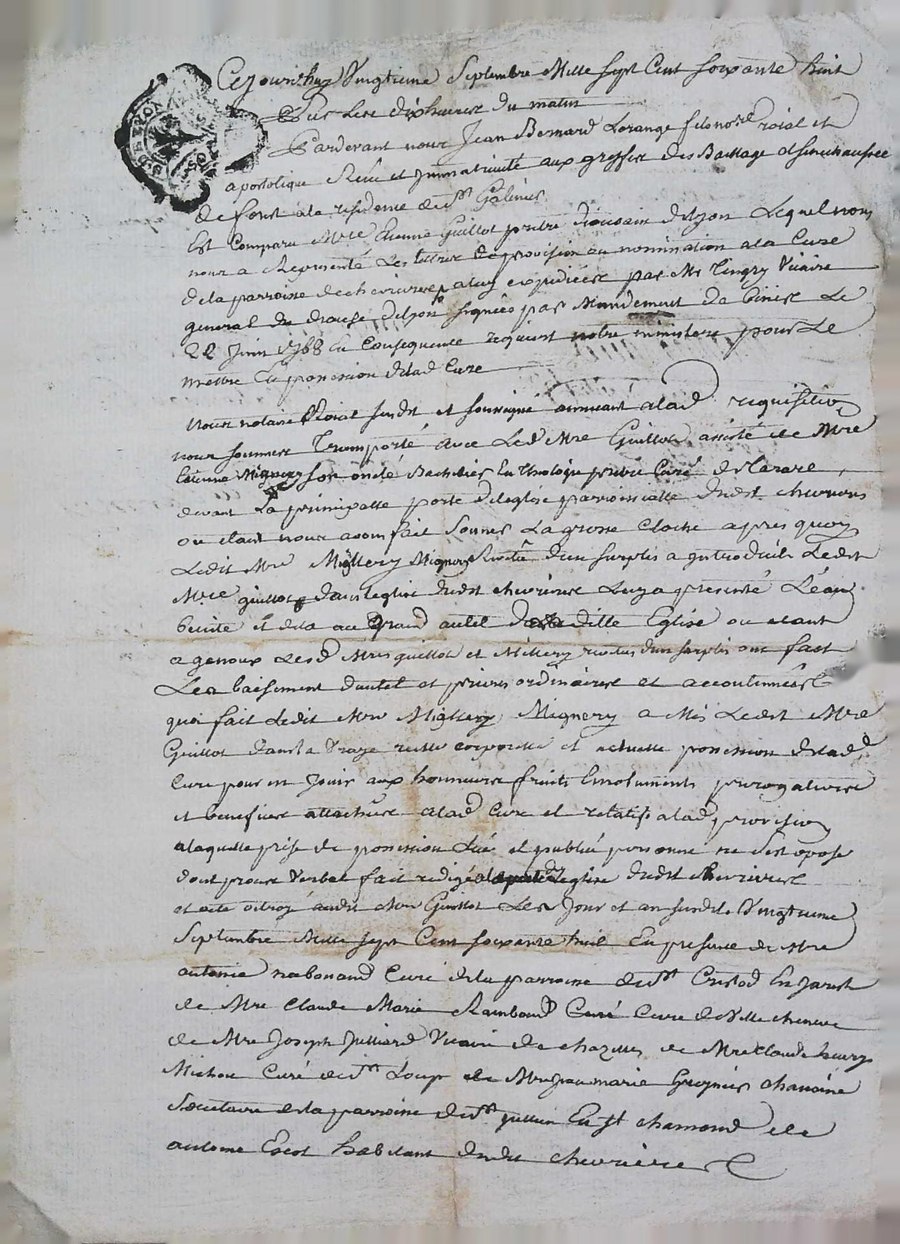 Cejourdhuy Vingtieme Septembre Mille Sept Cent Soixante huit
Sur les dix heures du matin
Pardevant nous Jean Bernard Lorange fils no.re roial et
apostolique Reservé et Immatriculé aux greffes des Bailliage et senechaussée
de forest a la residence de St Galmier
Est Comparu Mre Etienne Guillot pretre diocesain de lyon Lequel
nous a Representé Les lettres de provision ou nomination a la Cure
de la parroisse de chevrieres a luy expediées par Mr Tingry Vicaire
general du diocese de lyon signées par Mandement De Ginise Le
22 Juin 1768 En Consequence requiert notre ministere pour Le
mettre En possession de lad Cure
Nous notaire Roial susdit et soussigné a lad requisition
nous sommes Transporté avec Led Mre Guillot assisté de Mre
Etienne Mignery Bachelier En Theologie pretre Curé de
devant La principalle porte de leglise parroissialle dudit chevrieres
ou etant nous avons fait sonner La grosse cloche apres quoy
Ledit Mre Mignery Revetu d'un surplis a introduit Ledit
Mre guillot dans leglise dudit chevrieres Luy a presenté L'eau
benite et de la au grand autel de la ditte Eglise ou etant
a genoux Lesd Mres guillot et Mignery revetus dun surplis ont fait
Les baisement d'autel et prieres ordinaires et accoutumées
quoi fait Ledit Mre Mignery a Mis Ledit Mre
Guillot dans la Vraye reelle corporelle et actuelle possession de lad
Cure pour en Jouir aux honneurs fruits Emoluments prerogatives
et benefices attachés a lad Cure et relatifs a lad provision
a laquelle prise de possession Lüe et publié personne ne s'est oposé
dont proces Verbal fait redigé leglise dudit chevrieres
et acte octroyé audit Mre Guillot Les Jour et an susdits Vingtieme
Septembre Mille Sept Cent soixante huit En presence de Mre
antoine nabonand Curé de la parroisse de St Cristod En Jarest
de Mre Claude Marie Raimbaud Curé de Ville cheneve
de Mre Joseph Julliard Vicaire de chazelles de Mre Claude henry
Michon Curé de St Loup de Mre Jean marie Grognier chanoine
Secretaire de la parroisse de St jullien En St chamond et de
antoine Escot habitant dudit chevrieres